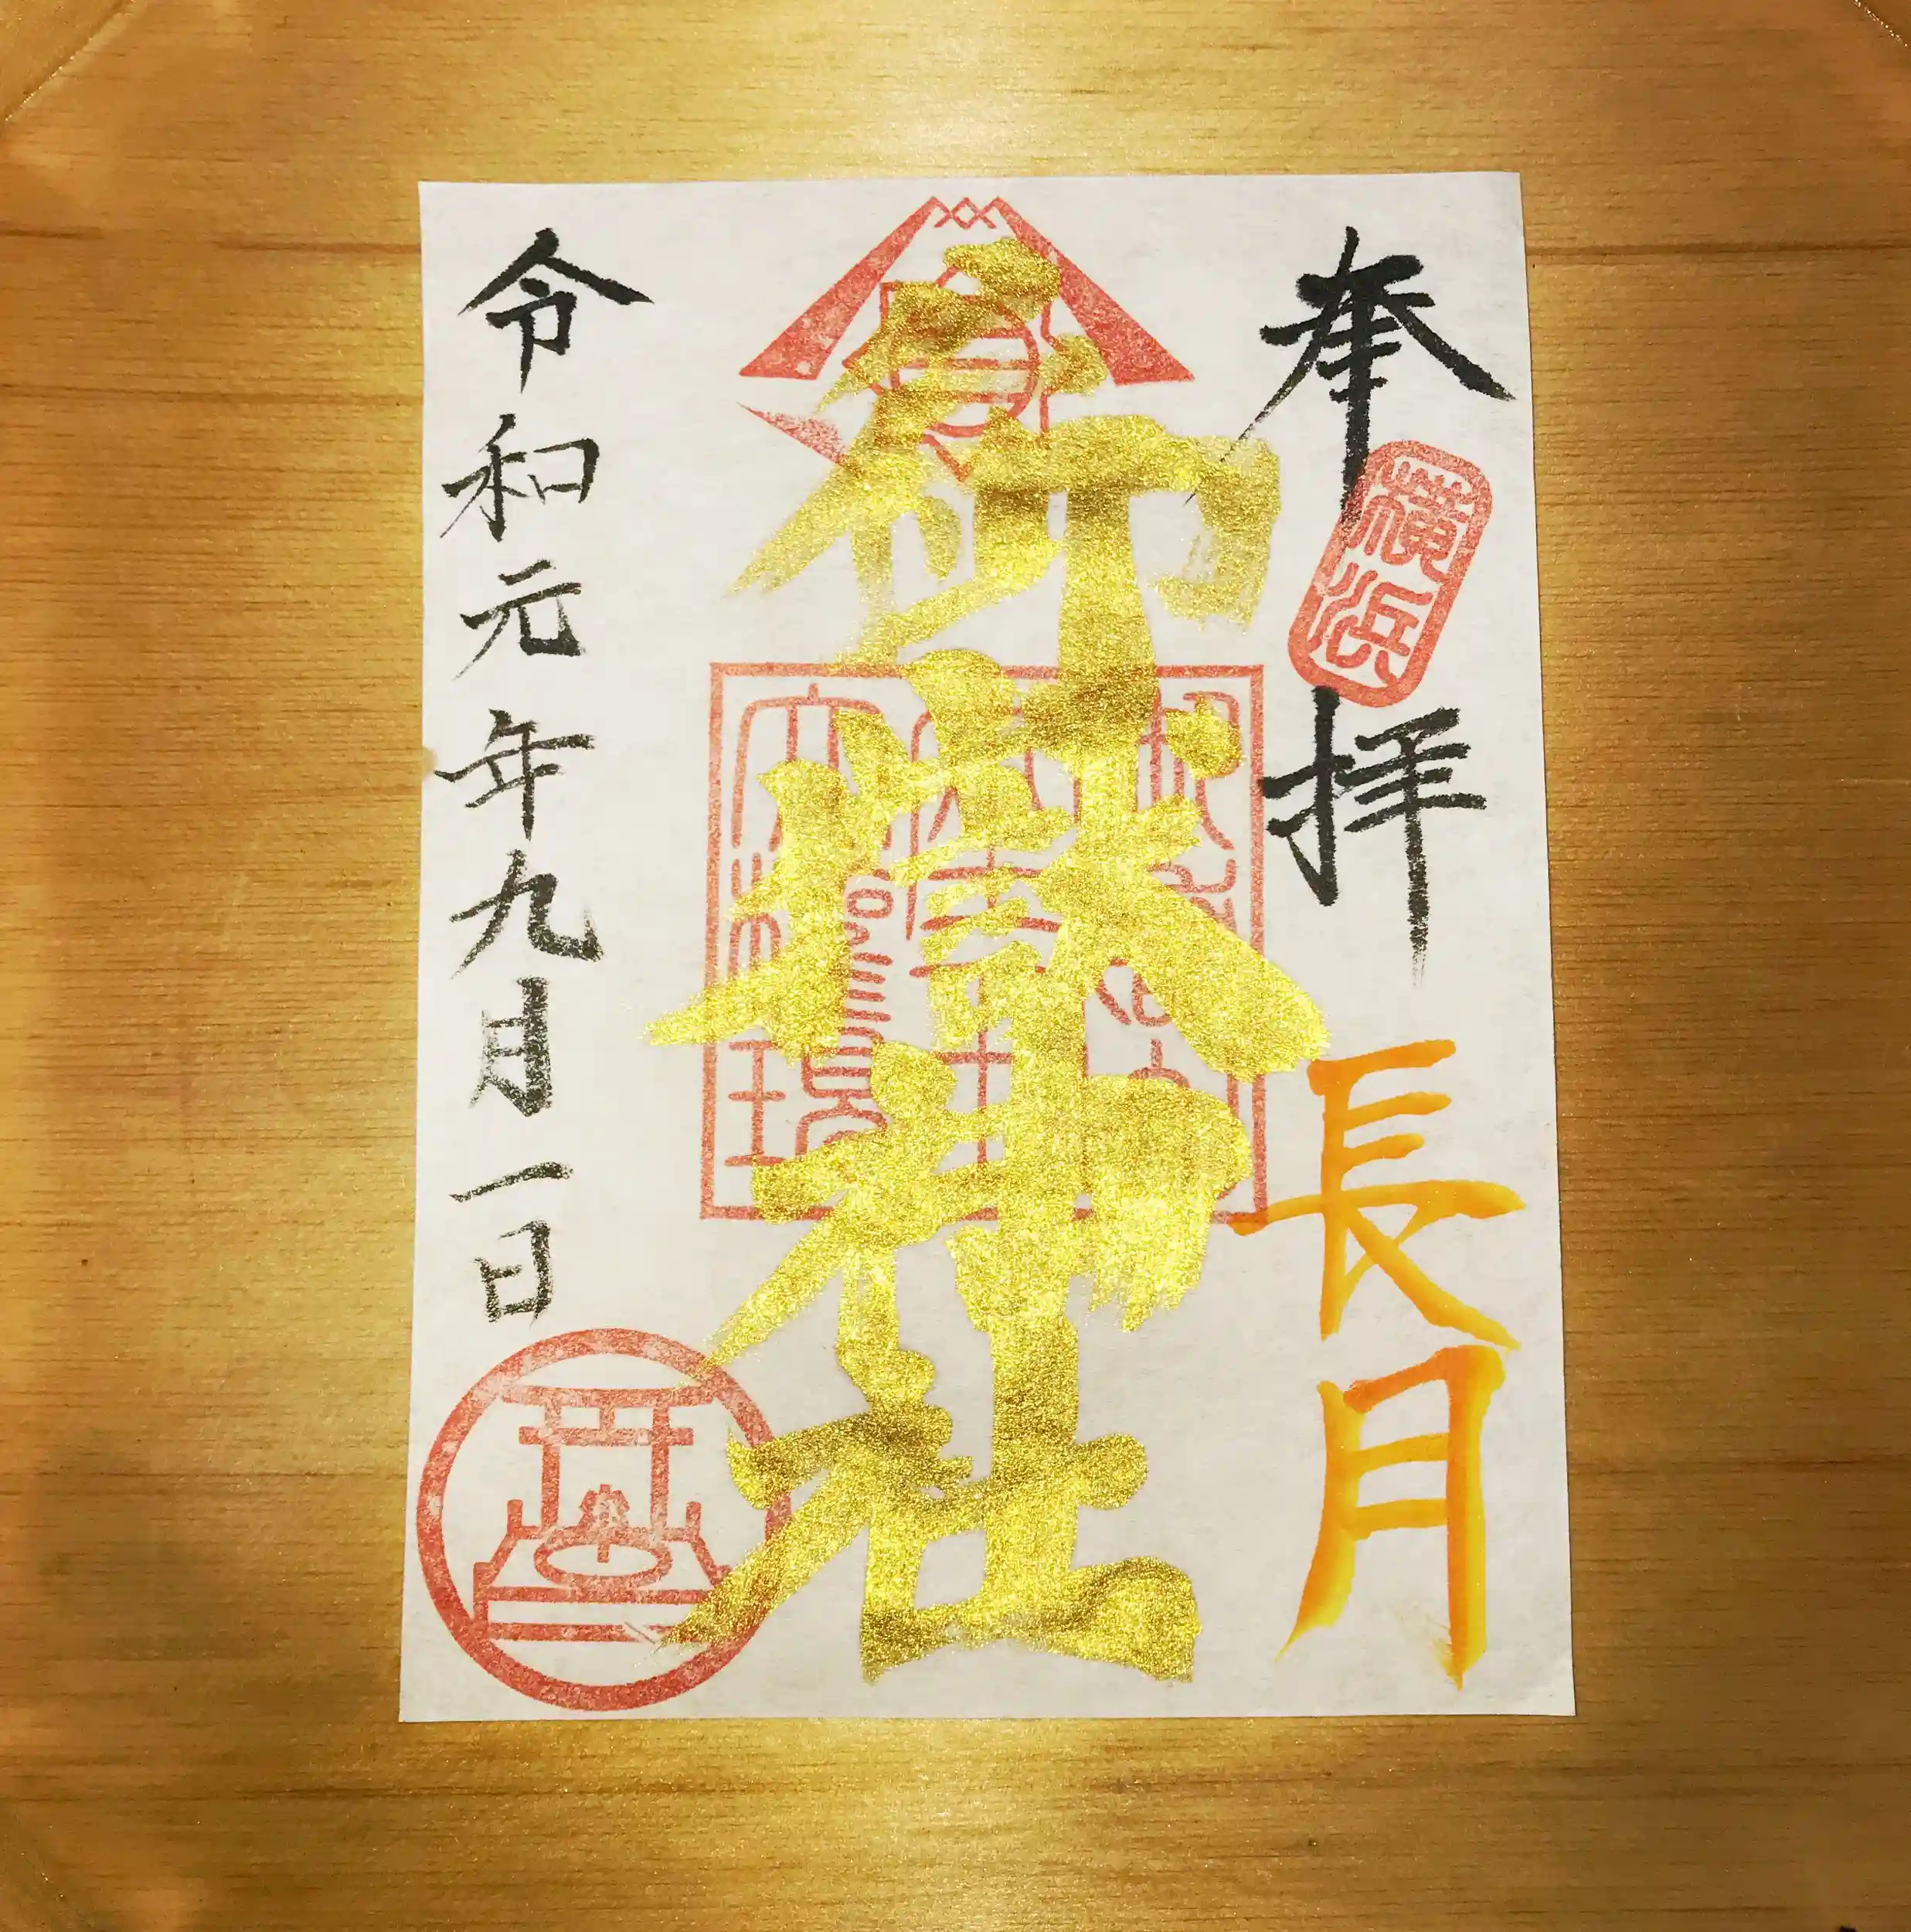 奉拝
横浜
長月
御嶽神社
令和元年九月一日